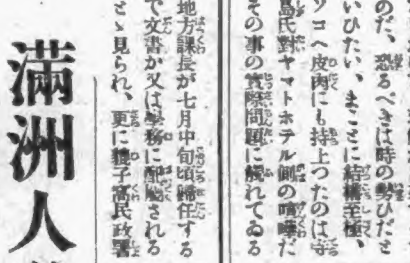 のだ、恐るべきは時の勢ひだと
いひたい、まことに結構至極、
ソコへ皮肉にも持上つたのは寺
島氏對ヤマトホテル側の喧嘩だ
その事の實際問題に觸れてゐる
地方課長が七月中旬頃歸任する
で文書か又は學務に配屬される
とゝ見られ、更に貔子窩民政署
滿洲人